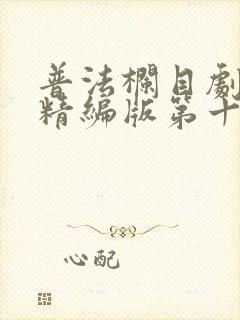 普法欄目劇
精編版第十
心配